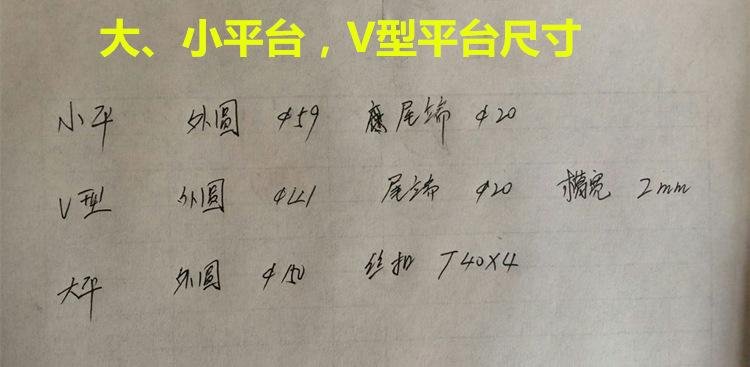 大、小平台，V型平台尺寸
小平 外圆 φ59 尾端 φ20
V型 外圆 φ41 尾端 φ20 横宽 2mm
大平 外圆 φ150 丝扣 T40×4